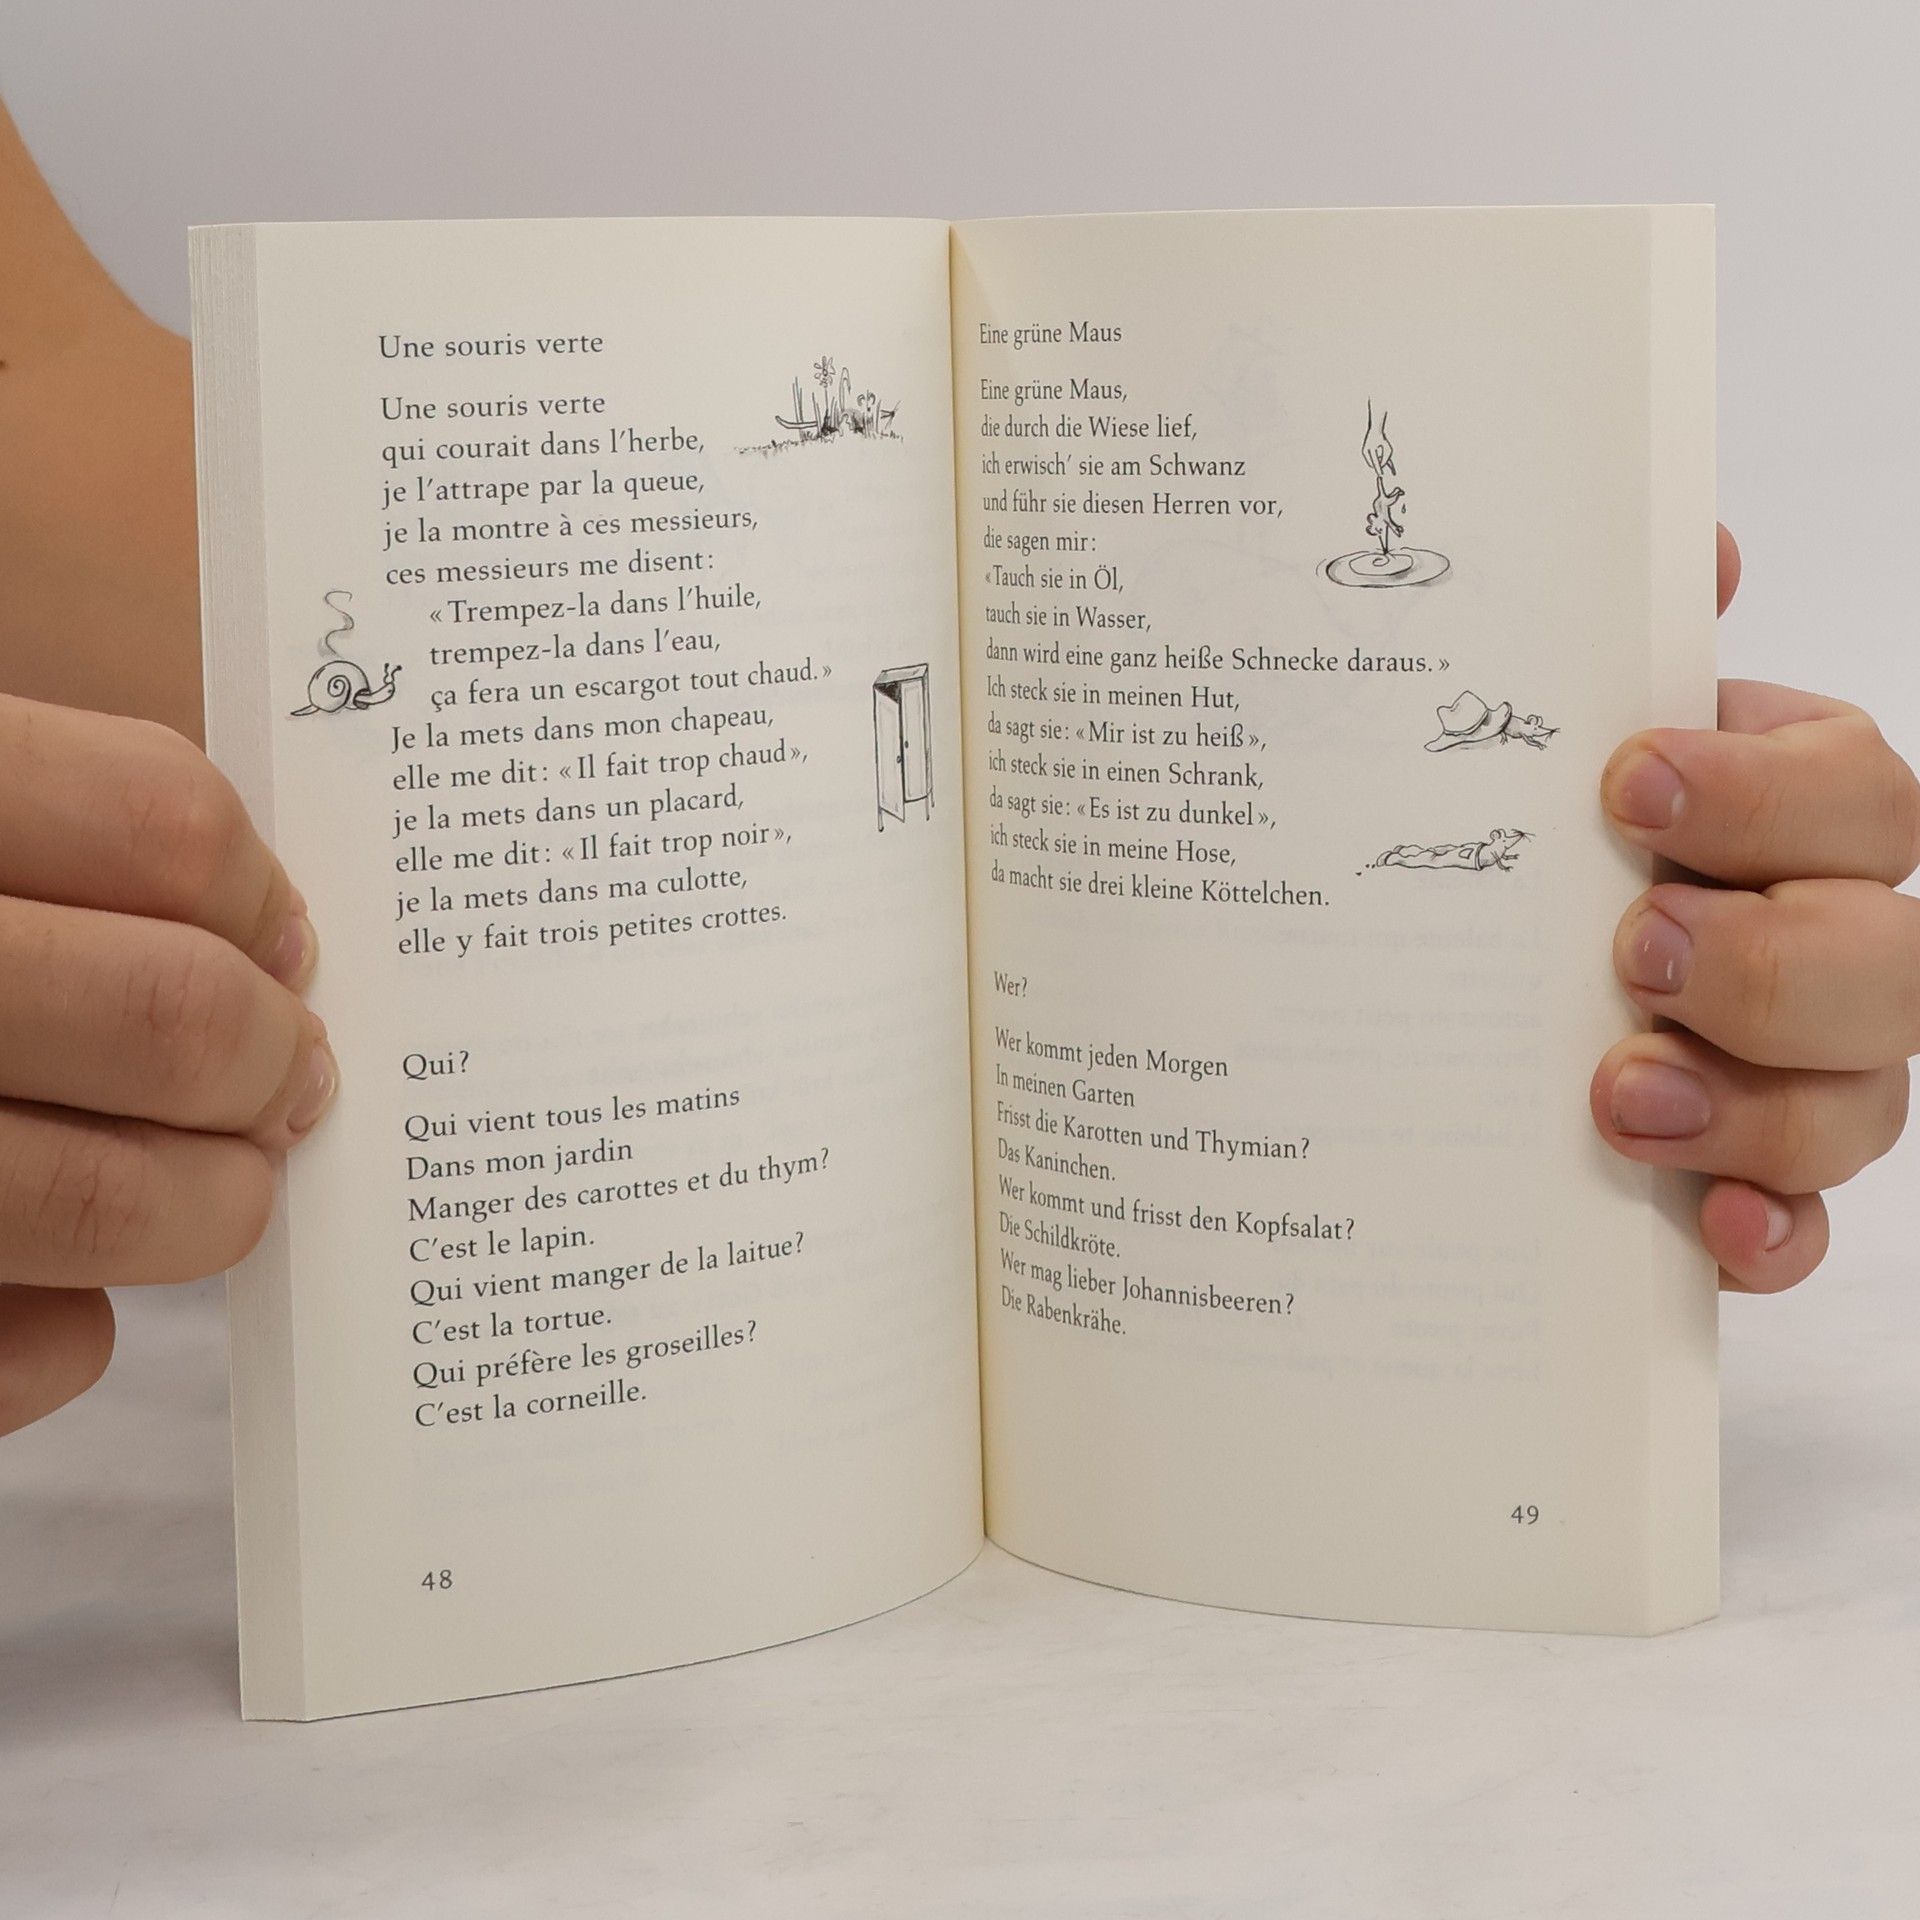 Une souris verte
Une souris verte
qui courait dans l'herbe,
je l'attrape par la queue,
je la montre à ces messieurs,
ces messieurs me disent:
«Trempez-la dans l'huile,
trempez-la dans l'eau,
ça fera un escargot tout chaud.»
Je la mets dans mon chapeau,
elle me dit: «Il fait trop chaud»,
je la mets dans un placard,
elle me dit: «Il fait trop noir»,
je la mets dans ma culotte,
elle y fait trois petites crottes.
Qui?
Qui vient tous les matins
Dans mon jardin
Manger des carottes et du thym?
C'est le lapin.
Qui vient manger de la laitue?
C'est la tortue.
Qui préfère les groseilles?
C'est la corneille.
48
Eine grüne Maus
Eine grüne Maus,
die durch die Wiese lief,
ich erwisch' sie am Schwanz
und führ sie diesen Herren vor,
die sagen mir:
«Tauch sie in Öl,
tauch sie in Wasser,
dann wird eine ganz heiße Schnecke daraus.»
Ich steck sie in meinen Hut,
da sagt sie: «Mir ist zu heiß»,
ich steck sie in einen Schrank,
da sagt sie: «Es ist zu dunkel»,
ich steck sie in meine Hose,
da macht sie drei kleine Köttelchen.
Wer?
Wer kommt jeden Morgen
In meinen Garten
Frisst die Karotten und Thymian?
Das Kaninchen.
Wer kommt und frisst den Kopfsalat?
Die Schildkröte.
Wer mag lieber Johannisbeeren?
Die Rabenkrähe.
49